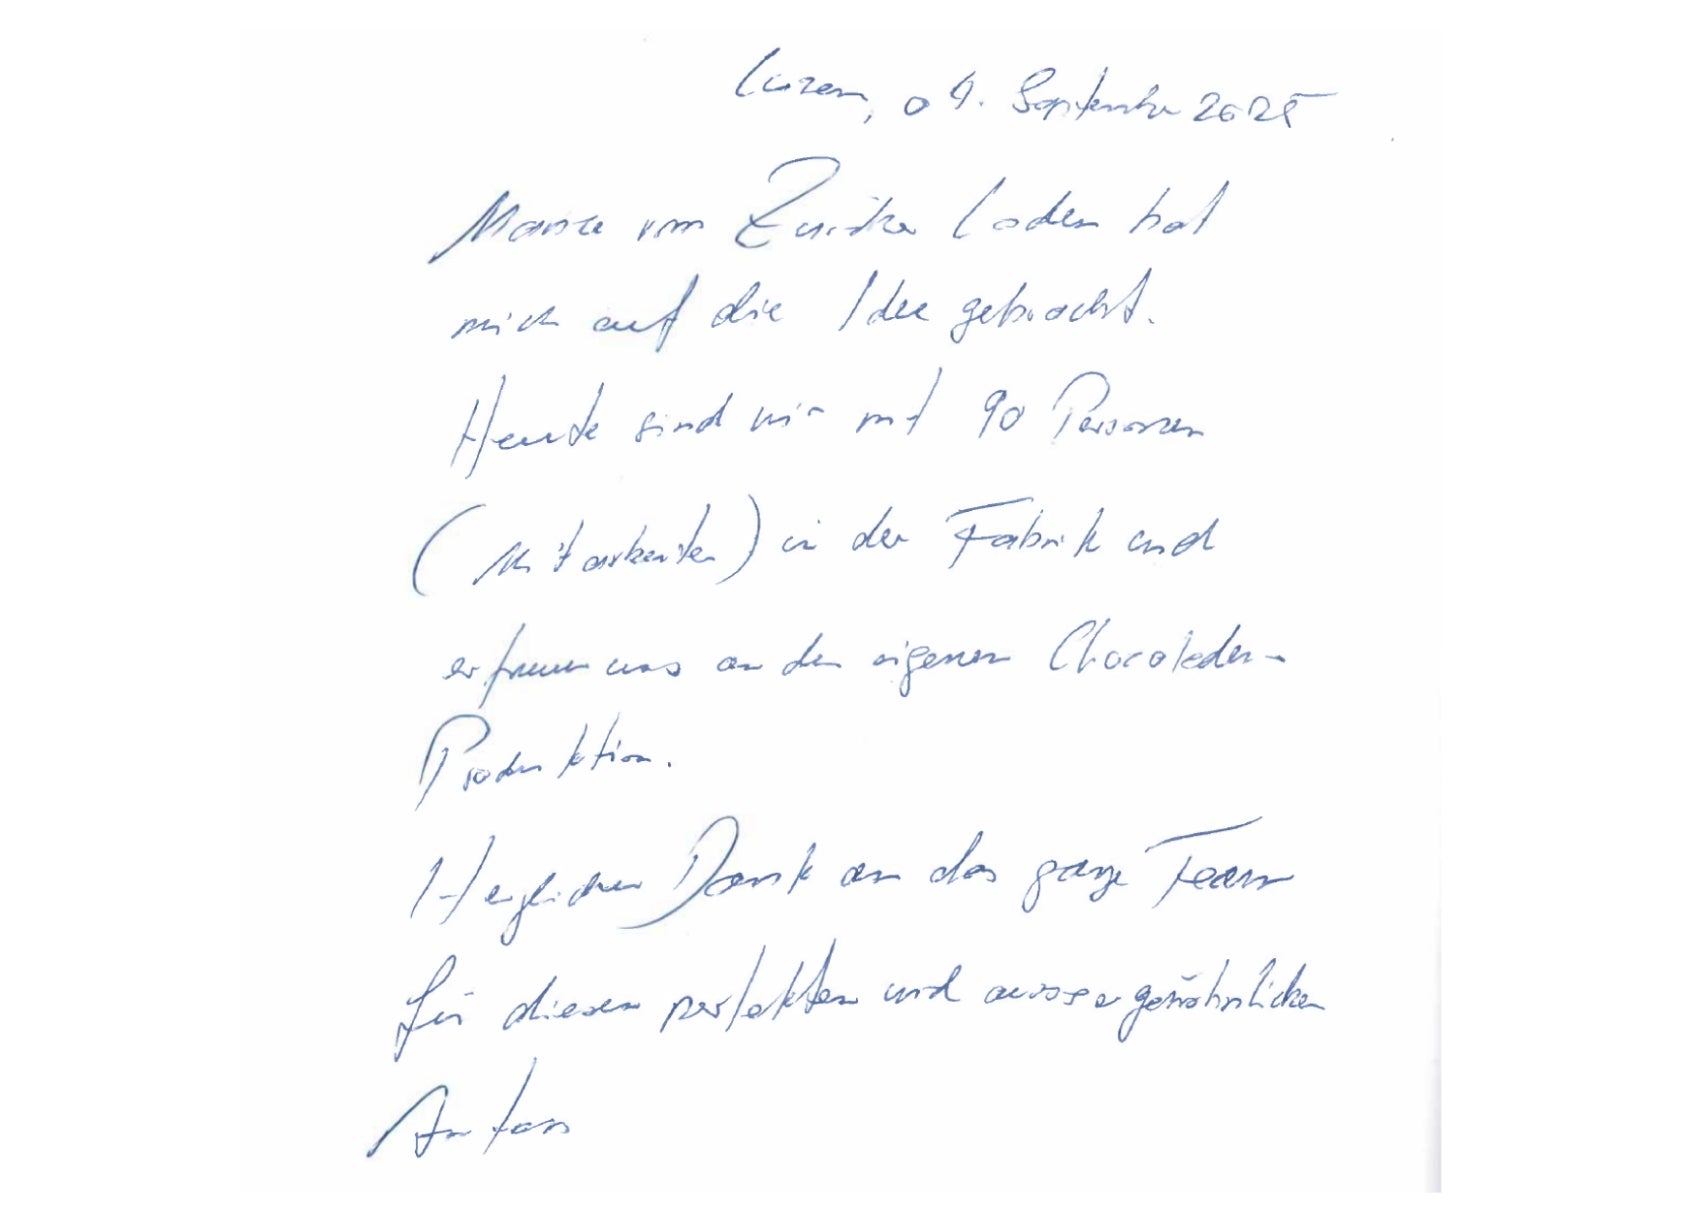 Luzern, 04. September 2025
vom Zürcher Laden hat
mich auf die Idee gebracht.
Heute sind wir mit 90 Personen
(Mitarbeiter) in der Fabrik und
erfreuen uns an der eigenen Chocoladen-
Produktion.
Herzlichen Dank an das ganze Team
für diesen perfekten und aussergewöhnlichen